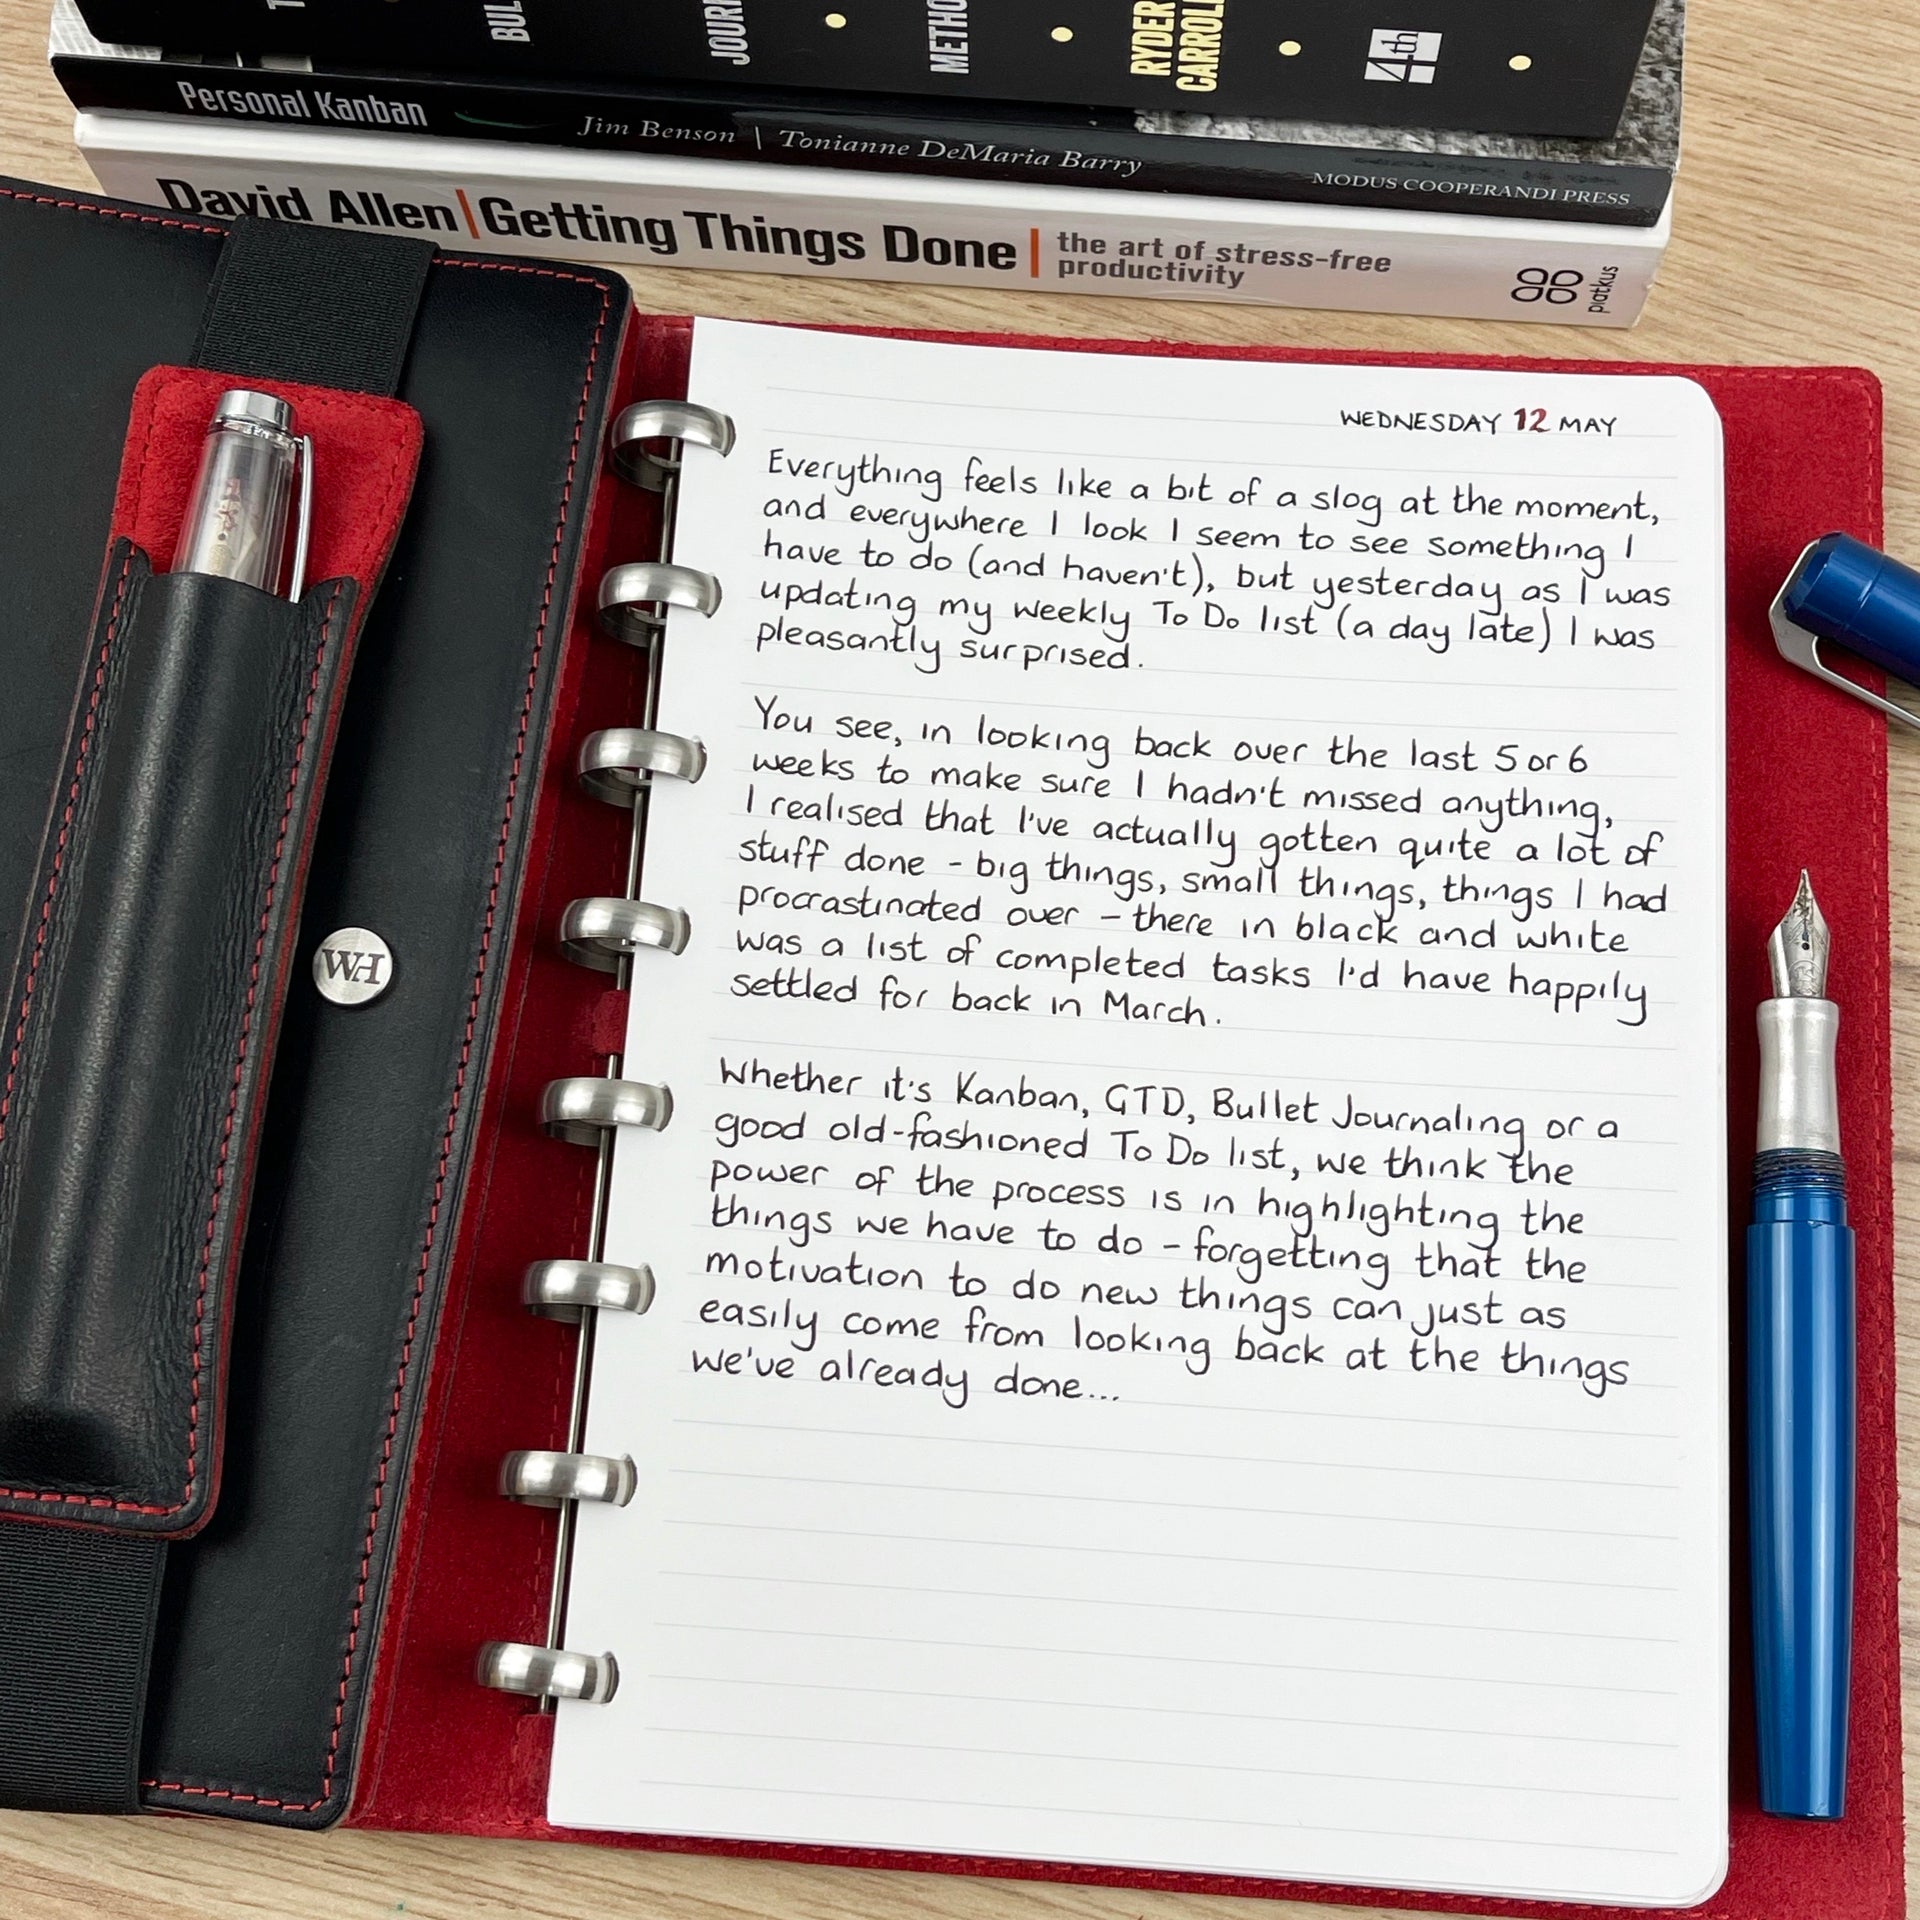 JOURN
METHO
RYDER
CARROLL
4th
Personal Kanban
Jim Benson | Tonianne DeMaria Barry
MODUS COOPERANDI PRESS
David Allen | Getting Things Done | the art of stress-free
productivity
piatkus
WH
WEDNESDAY 12 MAY
Everything feels like a bit of a slog at the moment,
and everywhere I look I seem to see something I
have to do (and haven't), but yesterday as I was
updating my weekly To Do list (a day late) I was
pleasantly surprised.
You see, in looking back over the last 5 or 6
weeks to make sure I hadn't missed anything,
I realised that I've actually gotten quite a lot of
stuff done - big things, small things, things I had
procrastinated over - there in black and white
was a list of completed tasks I'd have happily
settled for back in March.
Whether it's Kanban, GTD, Bullet Journaling or a
good old-fashioned To Do list, we think the
power of the process is in highlighting the
things we have to do - forgetting that the
motivation to do new things can just as
easily come from looking back at the things
we've already done...